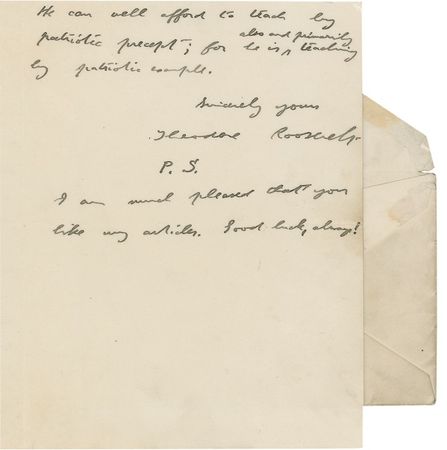 He can well afford to teach by
patriotic precept; for he is, also and primarily, teaching
by patriotic example.
Sincerely yours
Theodore Roosevelt
P.S.
I am much pleased that you
like my articles. Good luck, always!